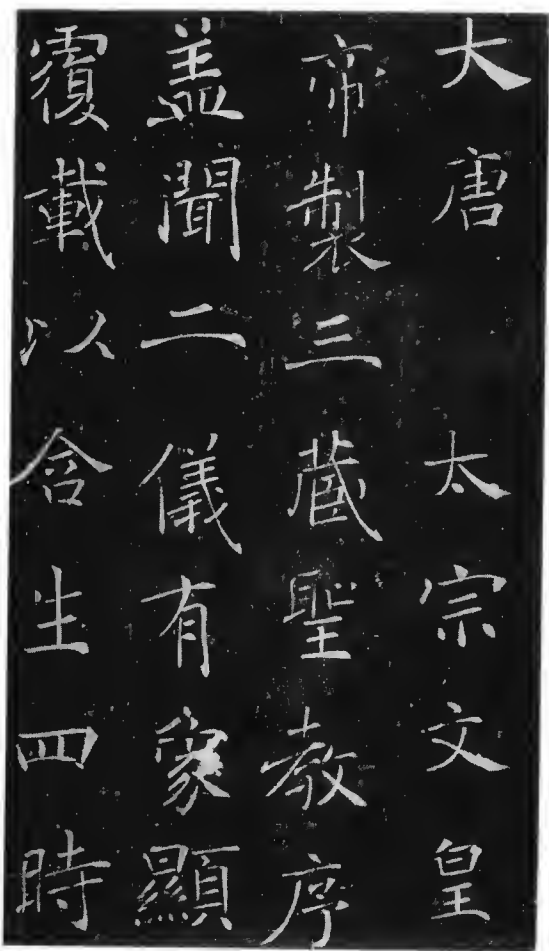 大唐　太宗文皇
帝製三藏聖教序
蓋聞二儀有象顯
覆載以含生四時